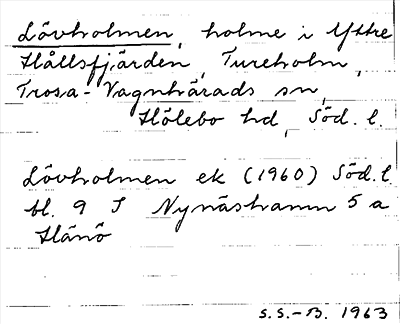 Lövholmen, holme i Yttre
Hållsfjärden, Tureholm,
Trosa-Vagnhärads sn,
Hölebo hd, Söd. l.
Lövholmen ek (1960) Söd. l.
bl. 9 J Nynäshamn 5 a
Hånö
S.S.-B. 1963